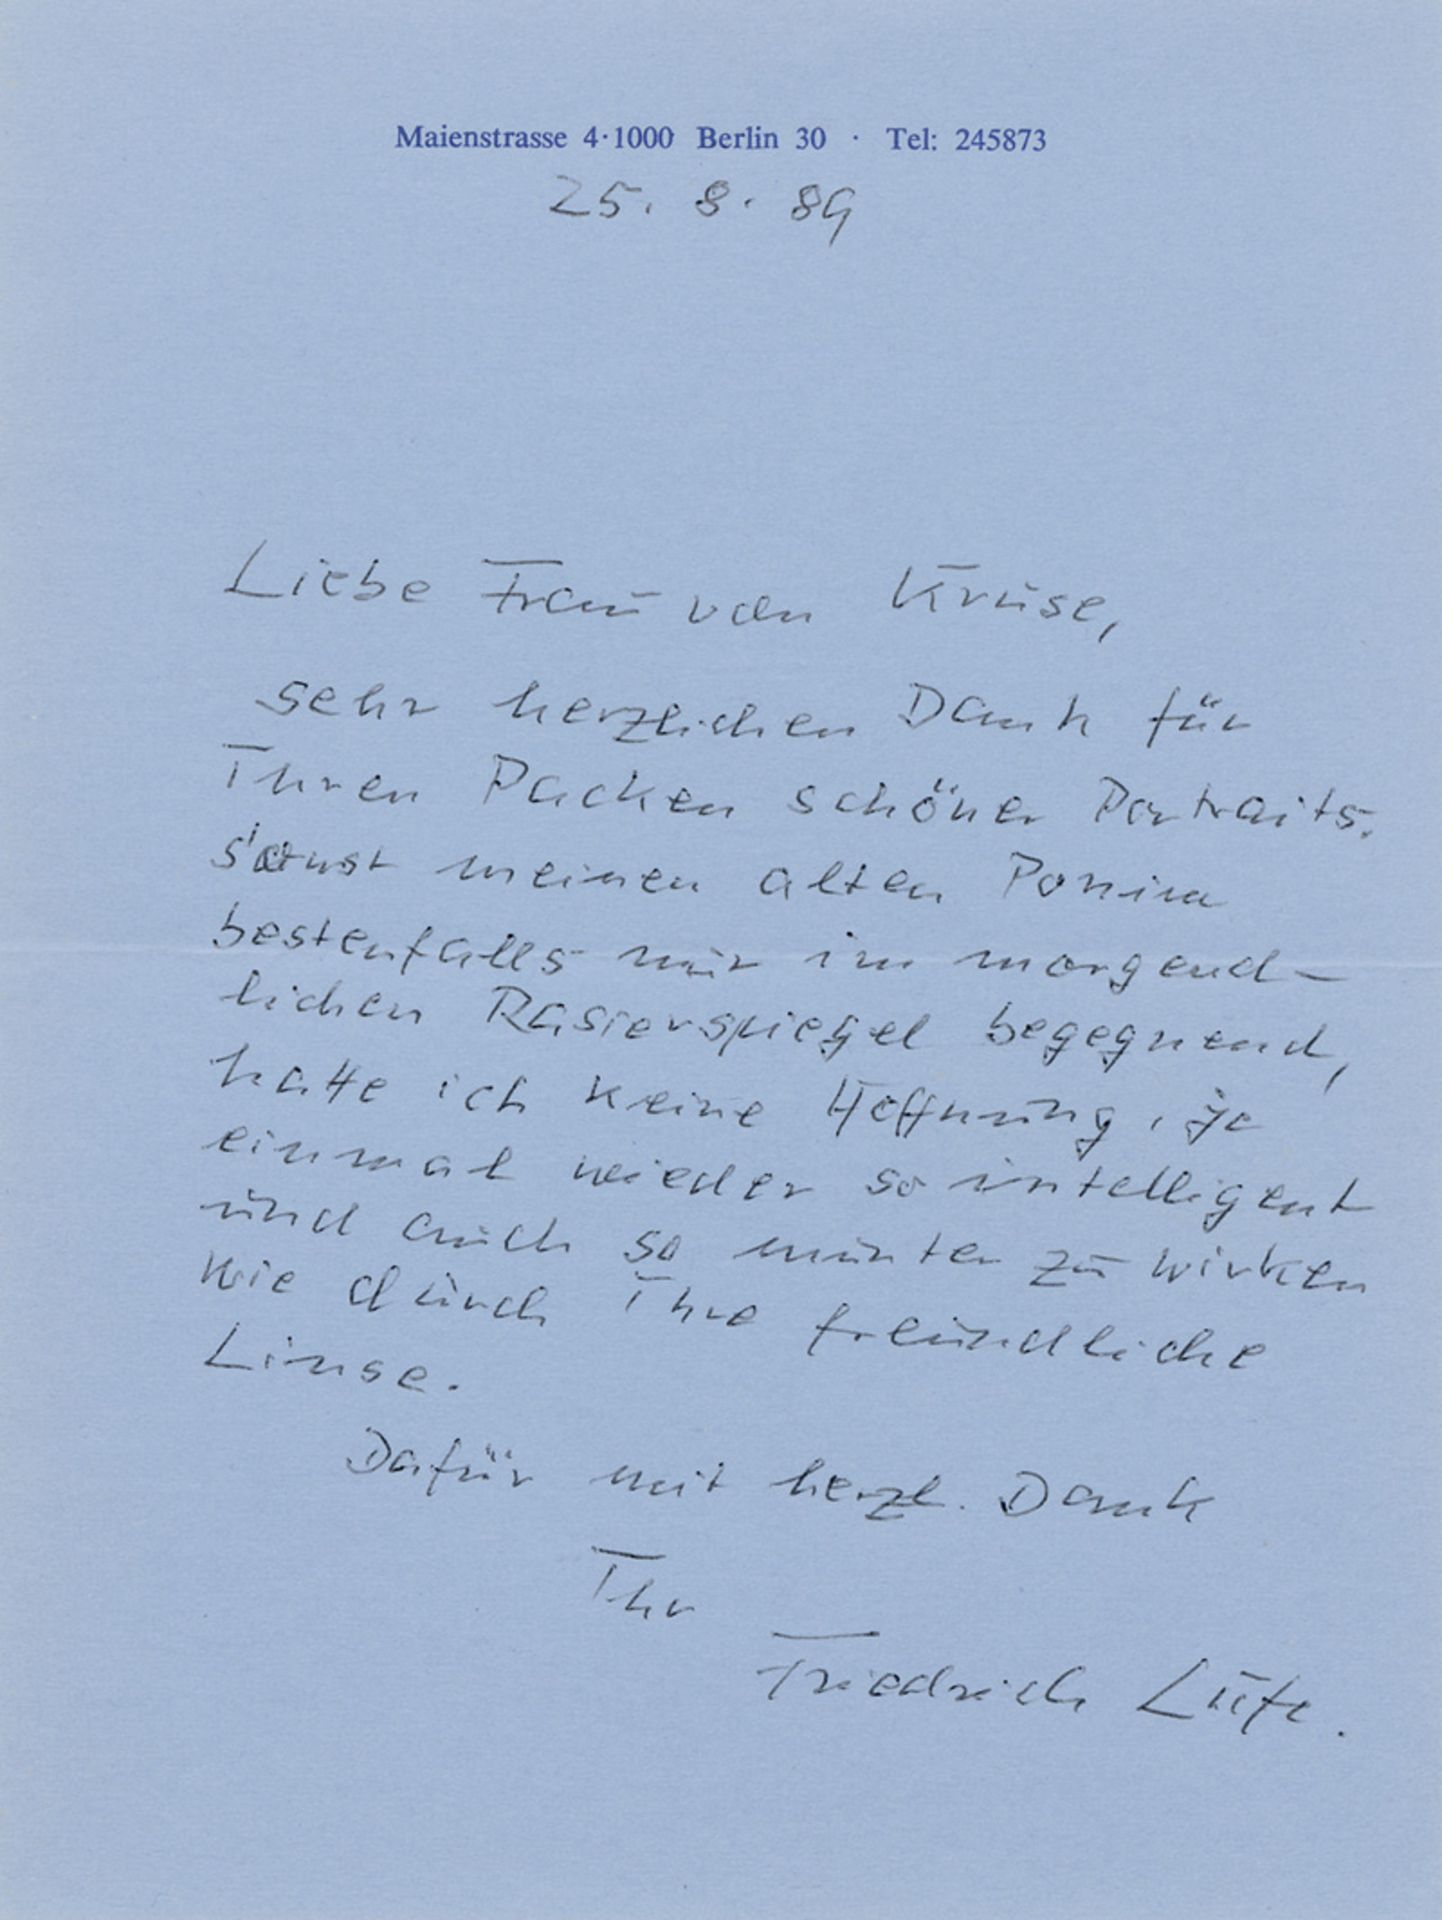 Maienstrasse 4·1000 Berlin 30 · Tel: 245873
25. 8. 89
Liebe Frau von Kruse,
sehr herzlichen Dank für
Ihren Packen schöner Portraits.
Sonst meinen alten Ponim
bestenfalls nur im morgend-
lichen Rasierspiegel begegnend,
hatte ich keine Hoffnung, je
einmal wieder so intelligent
und auch so munter zu wirken
wie durch Ihre freundliche
Linse.
Dafür mit herzl. Dank
Ihr
Friedrich Luft.